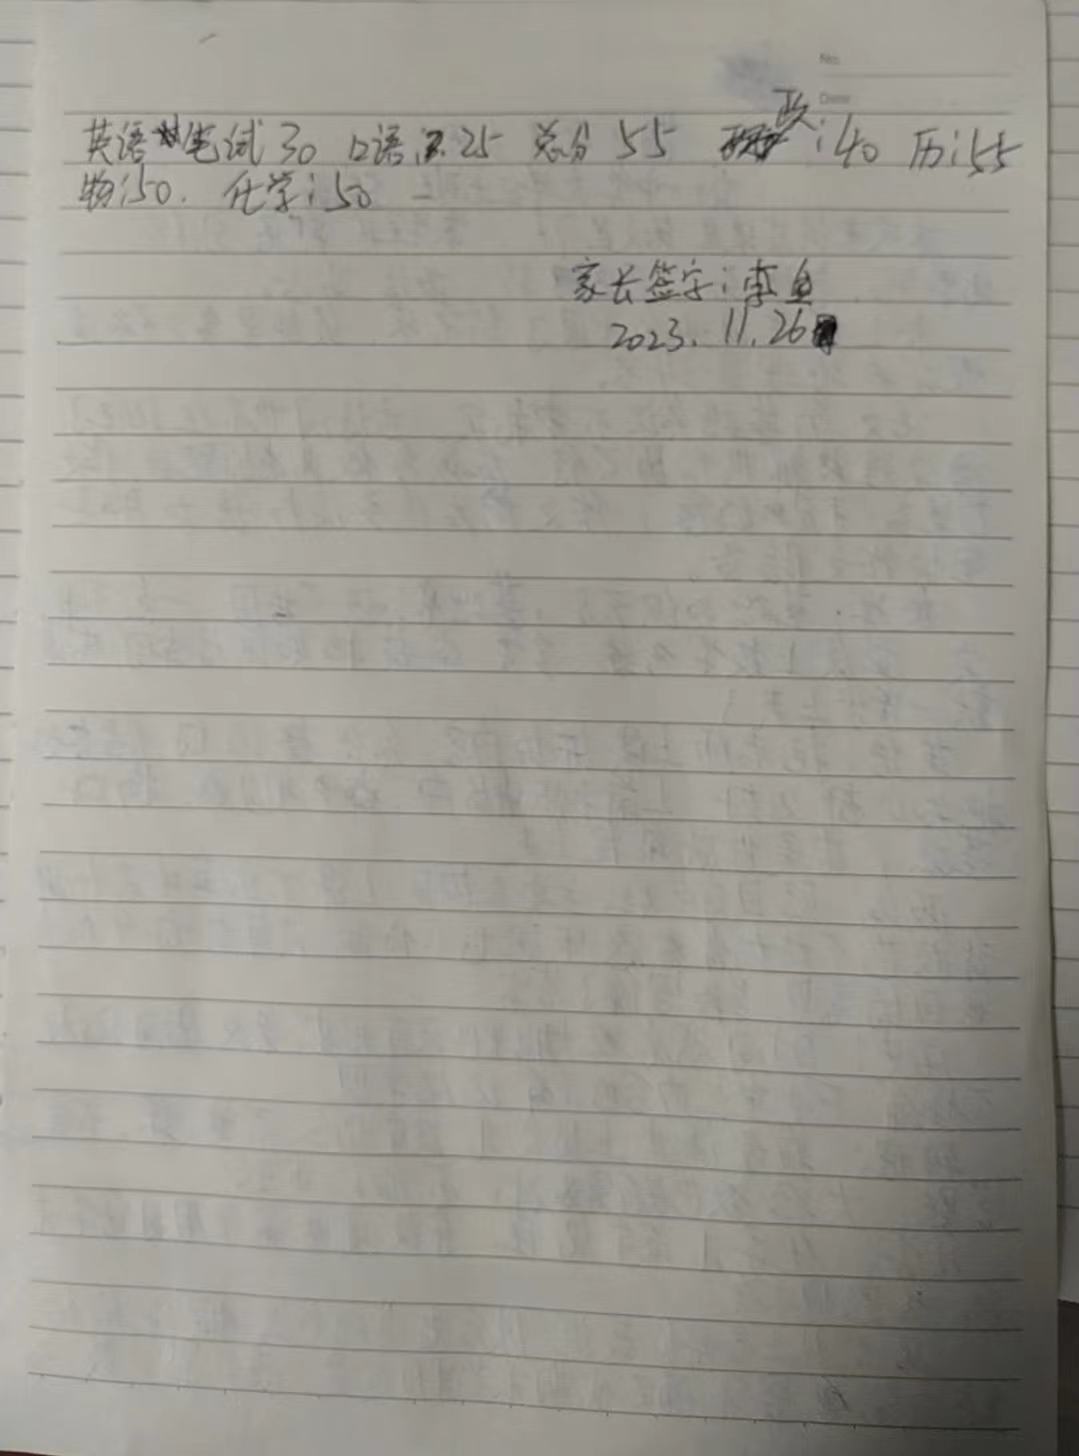 No.
Date
英语 笔试 30 口语 25 总分 55 政:40 历:55
物:50. 化学:50
家长签字:李
2023.11.26